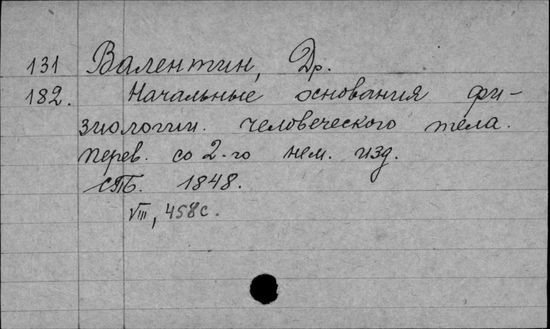 131 Валентин, Др.
182. Начальные основания фи-
зиологии. человеческого тела.
перев. со 2-го нем. изд.
СПБ. 1848.
VIII, 458 с.